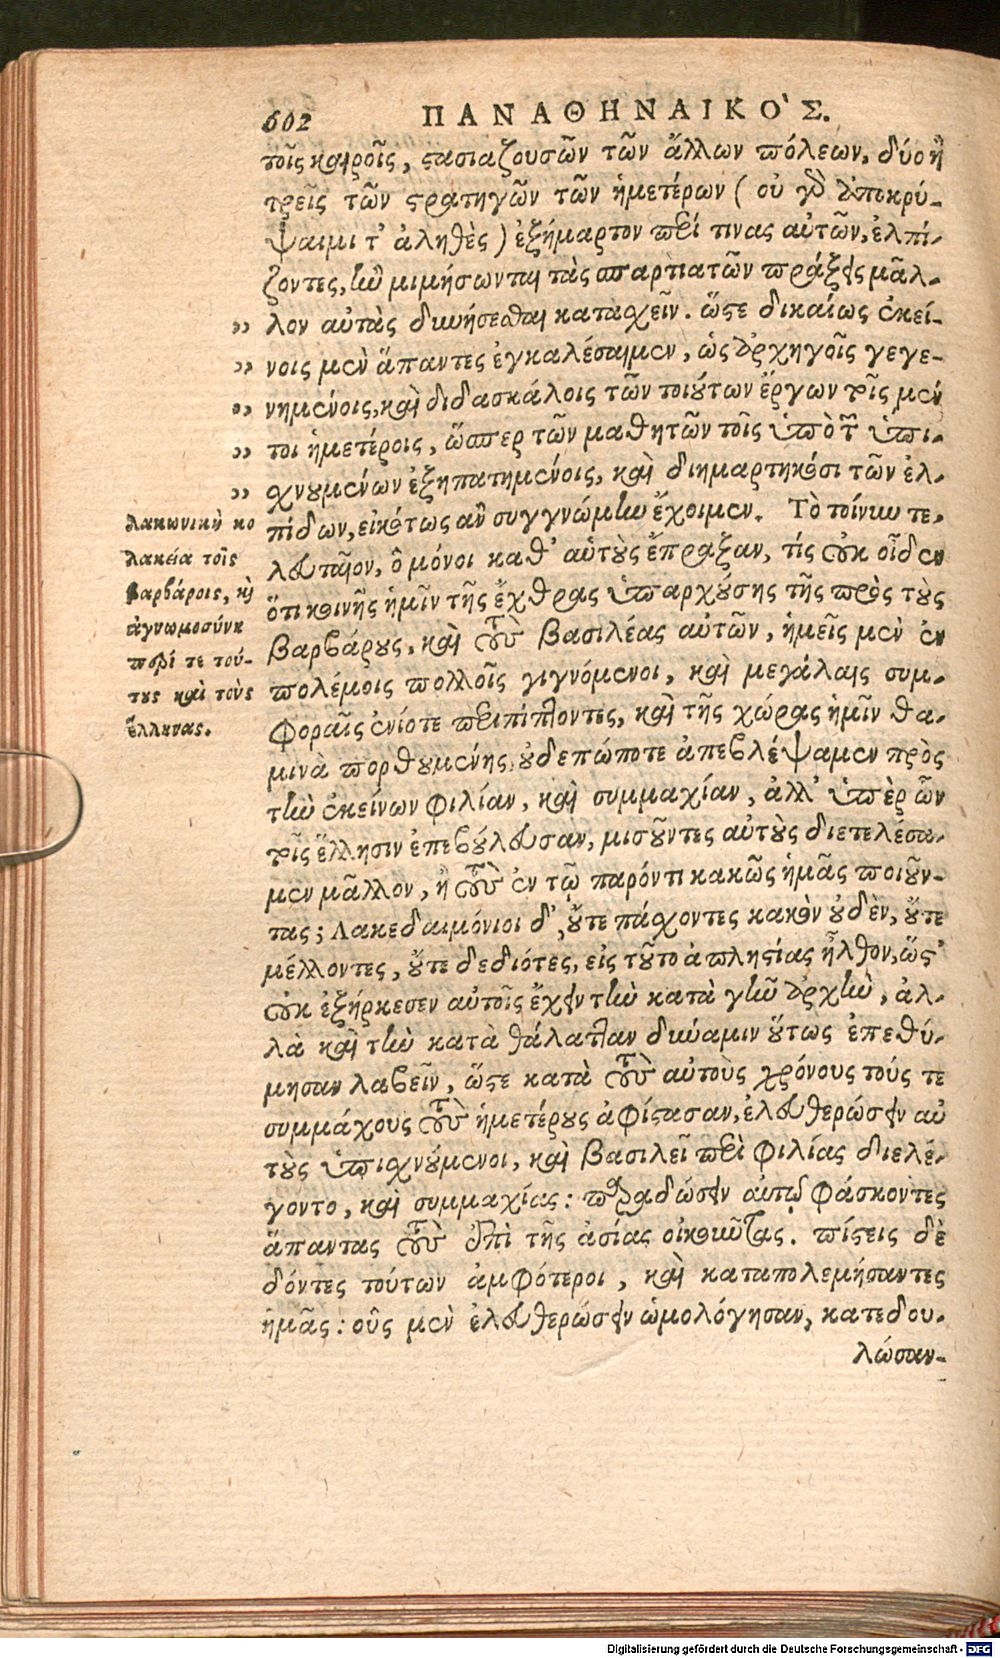 602 ΠΑΝΑΘΗΝΑΙΚΟ'Σ.
τοῖς καιροῖς, στασιαζουσῶν τῶν ἄλλων πόλεων, δύο ἢ
τρεῖς τῶν στρατηγῶν τῶν ἡμετέρων (οὐ γὰρ ἀποκρύ-
ψαιμι τ' ἀληθὲς) ἐξήμαρτον περί τινας αὐτῶν, ἐλπί-
ζοντες, ἢν μιμήσωνται τὰς σπαρτιατῶν πράξεις μᾶλ-
» λον αὐτὰς δυνήσεσθαι κατασχεῖν. ὥστε δικαίως ἐκεί-
» νοις μὲν ἅπαντες ἐγκαλέσαιμεν, ὡς ἀρχηγοῖς γεγε-
» νημένοις, καὶ διδασκάλοις τῶν τοιούτων ἔργων τοῖς μέν
» τοι ἡμετέροις, ὥσπερ τῶν μαθητῶν τοῖς ὑπὸ τῶν ὑπι-
» σχνουμένων ἐξηπατημένοις, καὶ διημαρτηκόσι τῶν ἐλ-
πίδων, εἰκότως ἂν συγγνώμην ἔχοιμεν. Τὸ τοίνυν τε-
λευταῖον, ὃ μόνοι καθ' αὑτοὺς ἔπραξαν, τίς οὐκ οἶδεν
ὅτι κοινῆς ἡμῖν τῆς ἔχθρας ὑπαρχούσης τῆς πρὸς τοὺς
βαρβάρους, καὶ τοὺς βασιλέας αὐτῶν, ἡμεῖς μὲν ἐν
πολέμοις πολλοῖς γιγνόμενοι, καὶ μεγάλαις συμ-
φοραῖς ἐνίοτε περιπίπτοντες, καὶ τῆς χώρας ἡμῖν θα-
μινὰ πορθουμένης, οὐδεπώποτε ἀπεβλέψαμεν πρὸς
τὴν ἐκείνων φιλίαν, καὶ συμμαχίαν, ἀλλ' ὑπὲρ ὧν
τοῖς ἕλλησιν ἐπεβούλευσαν, μισοῦντες αὐτοὺς διετελέσα-
μεν μᾶλλον, ἢ τοὺς ἐν τῷ παρόντι κακῶς ἡμᾶς ποιοῦν-
τας; Λακεδαιμόνιοι δ', οὔτε πάσχοντες κακὸν οὐδὲν, οὔτε
μέλλοντες, οὔτε δεδιότες, εἰς τοῦτο ἀπληστίας ἦλθον, ὥστ'
οὐκ ἐξήρκεσεν αὐτοῖς ἔχειν τὴν κατὰ γῆν ἀρχὴν, ἀλ-
λὰ καὶ τὴν κατὰ θάλατταν δύναμιν οὕτως ἐπεθύ-
μησαν λαβεῖν, ὥστε κατὰ τοὺς αὐτοὺς χρόνους τούς τε
συμμάχους τοὺς ἡμετέρους ἀφίστασαν, ἐλευθερώσειν αὐ
τοὺς ὑπισχνούμενοι, καὶ βασιλεῖ περὶ φιλίας διελέ-
γοντο, καὶ συμμαχίας: παραδώσειν αὐτῷ φάσκοντες
ἅπαντας τοὺς ἐπὶ τῆς ἀσίας οἰκοῦντας. πίστεις δὲ
δόντες τούτων ἀμφότεροι, καὶ καταπολεμήσαντες
ἡμᾶς: οὓς μὲν ἐλευθερώσειν ὡμολόγησαν, κατεδου-
λώσαν-
λακωνικὴ κο
λακεία τοῖς
βαρβάροις, καὶ
ἀγνωμοσύνη
περί τε τού-
τους καὶ τοὺς
ἕλληνας.
Digitalisierung gefördert durch die Deutsche Forschungsgemeinschaft - DFG